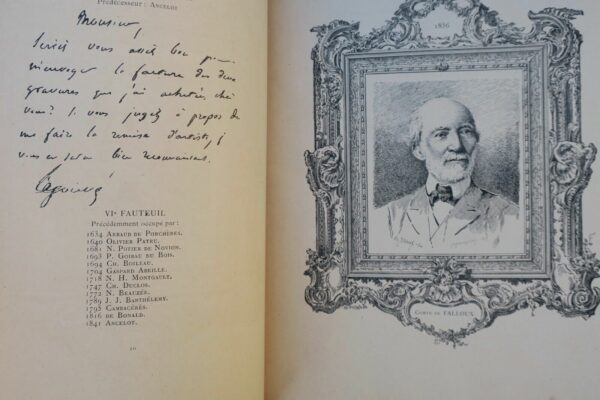 Prédécesseur : Ancelot
Monsieur,
Seriez vous assez bon pour
m'envoyer la facture des deux
gravures que j'ai achetées chez
vous? Si vous jugez à propos de
me faire la remise d'artiste, je
vous en serai bien reconnaissant.
VIe FAUTEUIL
Précédemment occupé par :
1634 Arbaud de Porchères.
1640 Olivier Patru.
1681 N. Potier de Novion.
1693 P. Goibau du Bois.
1694 Ch. Boileau.
1704 Gaspard Abeille.
1718 N. H. Montgault.
1747 Ch. Duclos.
1772 N. Beauzée.
1789 J. J. Barthélemy.
1795 Cambacérès.
1816 de Bonald.
1841 Ancelot.
1856
Comte de FALLOUX